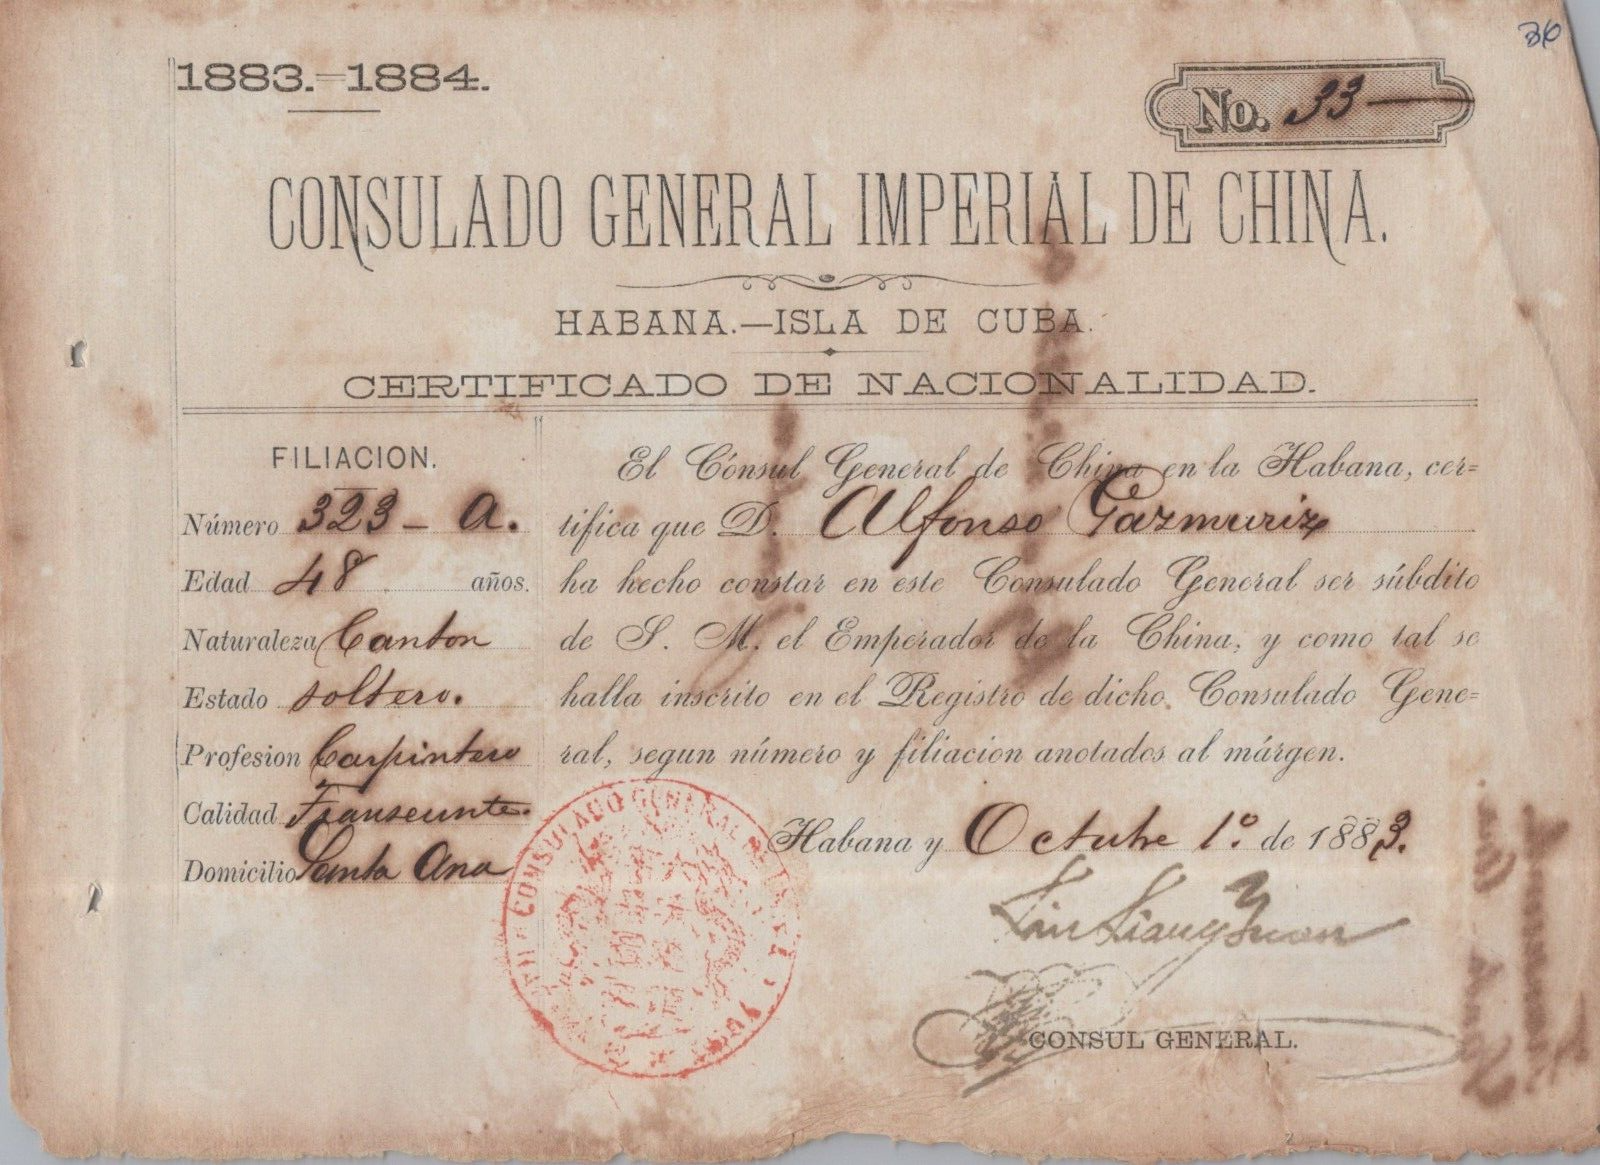 36
1883.=1884.
No. 33
CONSULADO GENERAL IMPERIAL DE CHINA.
HABANA.—ISLA DE CUBA.
CERTIFICADO DE NACIONALIDAD.
FILIACION.
Número 323 - A.
Edad 48 años.
Naturaleza Canton
Estado soltero.
Profesion Carpintero
Calidad Transeunte.
Domicilio Santa Ana
El Cónsul General de China en la Habana, cer=
tifica que D. Alfonso Gazmuriz
ha hecho constar en este Consulado General ser súbdito
de S. M. el Emperador de la China, y como tal se
halla inscrito en el Registro de dicho Consulado Gene=
ral, segun número y filiacion anotados al márgen.
Habana y Octubre 1º. de 1883.
Liu Liang Yuan
CONSUL GENERAL.
CONSULADO GENERAL